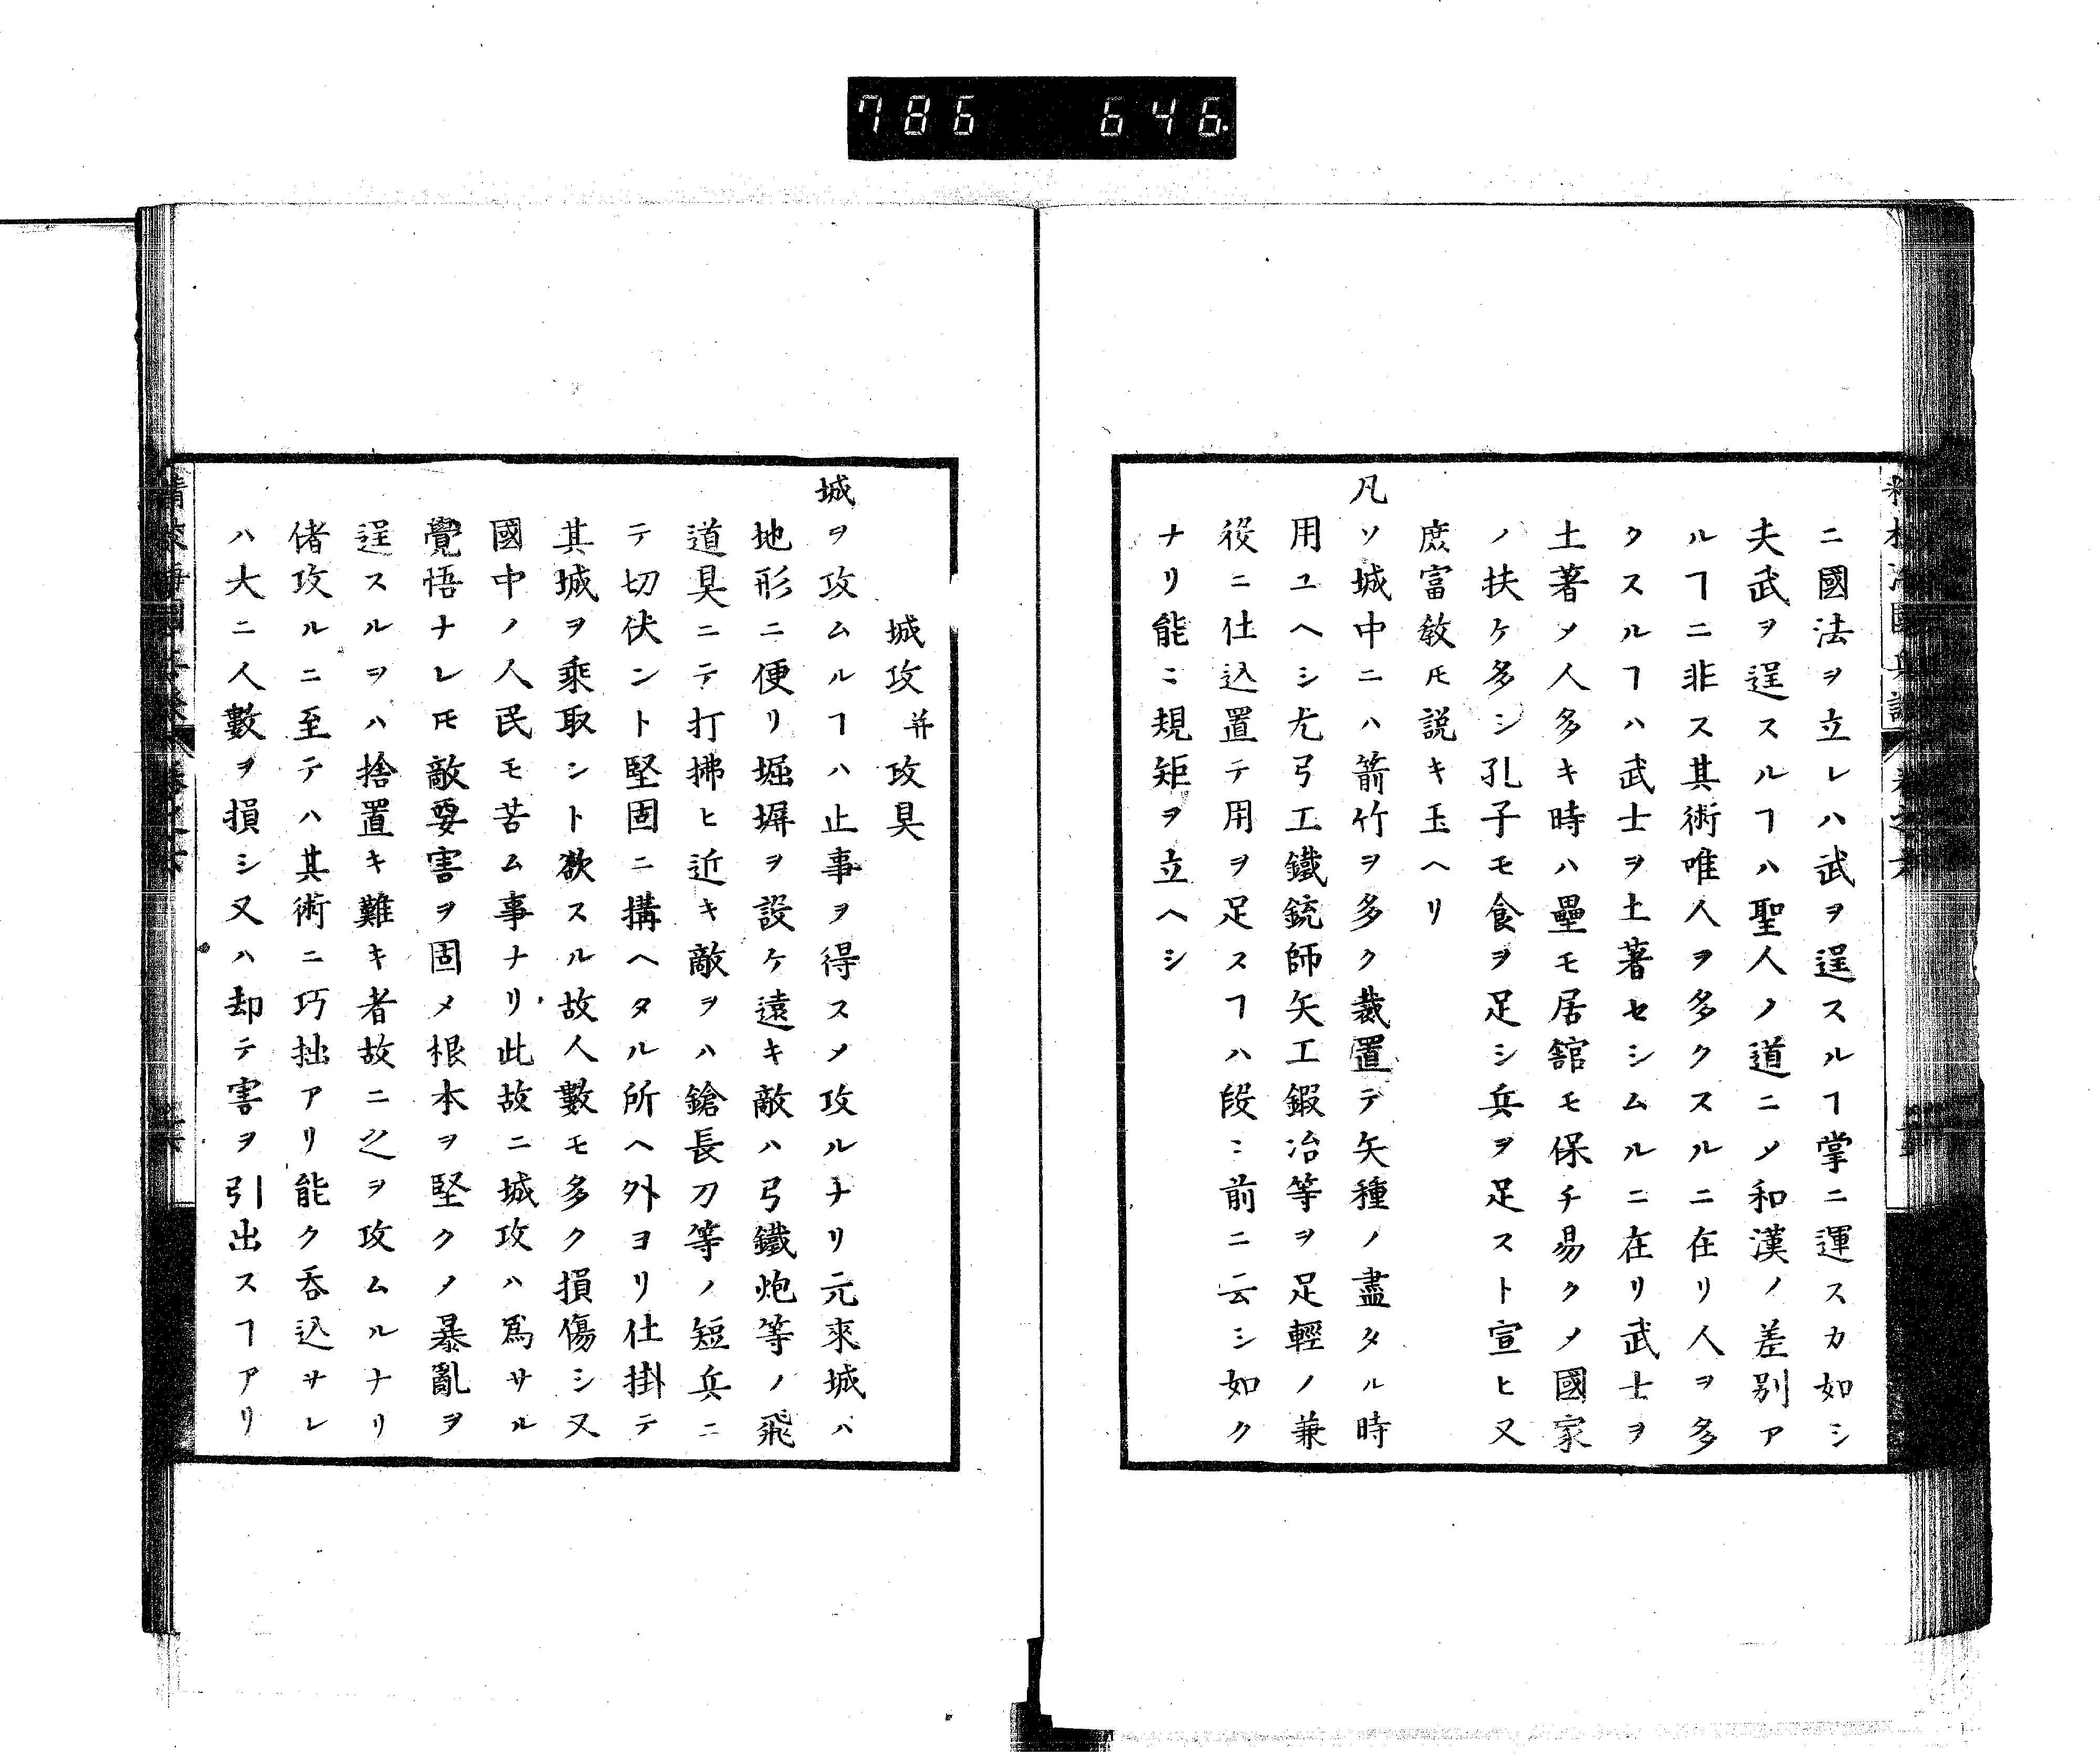 786 646
ニ國法ヲ立レハ武ヲ逞スルヿ掌ニ運スカ如シ
夫武ヲ逞スルヿハ聖人ノ道ニノ和漢ノ差別ア
ルヿニ非ス其術唯人ヲ多クスルニ在リ人ヲ多
クスルヿハ武士ヲ土著セシムルニ在リ武士ヲ
土著メ人多キ時ハ壘モ居舘モ保チ易クメ國家
ノ扶ケ多シ孔子モ食ヲ足シ兵ヲ足スト宣ヒ又
庶富敎𪜈説キ玉ヘリ
凡ソ城中ニハ箭竹ヲ多ク裁置テ矢種ノ盡タル時
用ユヘシ尤弓工鐵銃師矢工鍜冶等ヲ足輕ノ兼
役ニ仕込置テ用ヲ足スヿハ段ニ前ニ云シ如ク
ナリ能ニ規矩ヲ立ヘシ
城攻并攻具
城ヲ攻ムルヿハ止事ヲ得スメ攻ルナリ元來城ハ
地形ニ便リ堀塀ヲ設ケ遠キ敵ハ弓鐵炮等ノ飛
道具ニテ打拂ヒ近キ敵ヲハ鎗長刀等ノ短兵ニ
テ切伏ント堅固ニ搆ヘタル所ヘ外ヨリ仕掛テ
其城ヲ乘取ント欲スル故人數モ多ク損傷シ又
國中ノ人民モ苦ム事ナリ此故ニ城攻ハ爲サル
覺悟ナレ𪜈敵要害ヲ固メ根本ヲ堅クメ暴亂ヲ
逞スルヲハ捨置キ難キ者故ニ之ヲ攻ムルナリ
偖攻ルニ至テハ其術ニ巧拙アリ能ク呑込サレ
ハ大ニ人數ヲ損シ又ハ却テ害ヲ引出スヿアリ